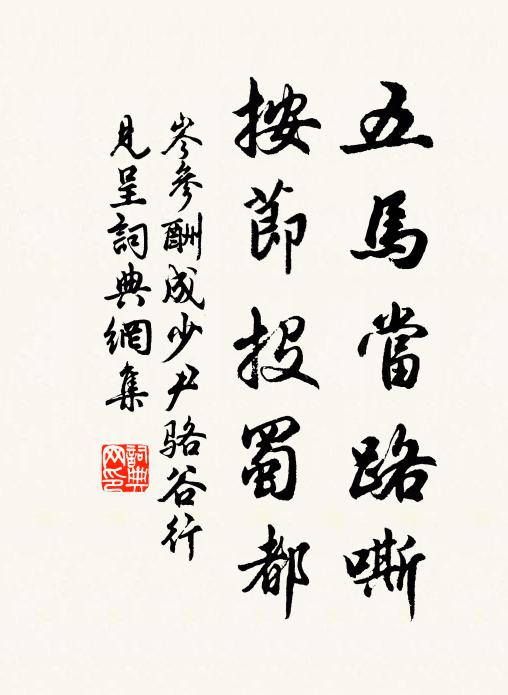 五馬當路嘶
按節投蜀都
岑參酬成少尹骆谷行
見呈詞典網集
詞典网印